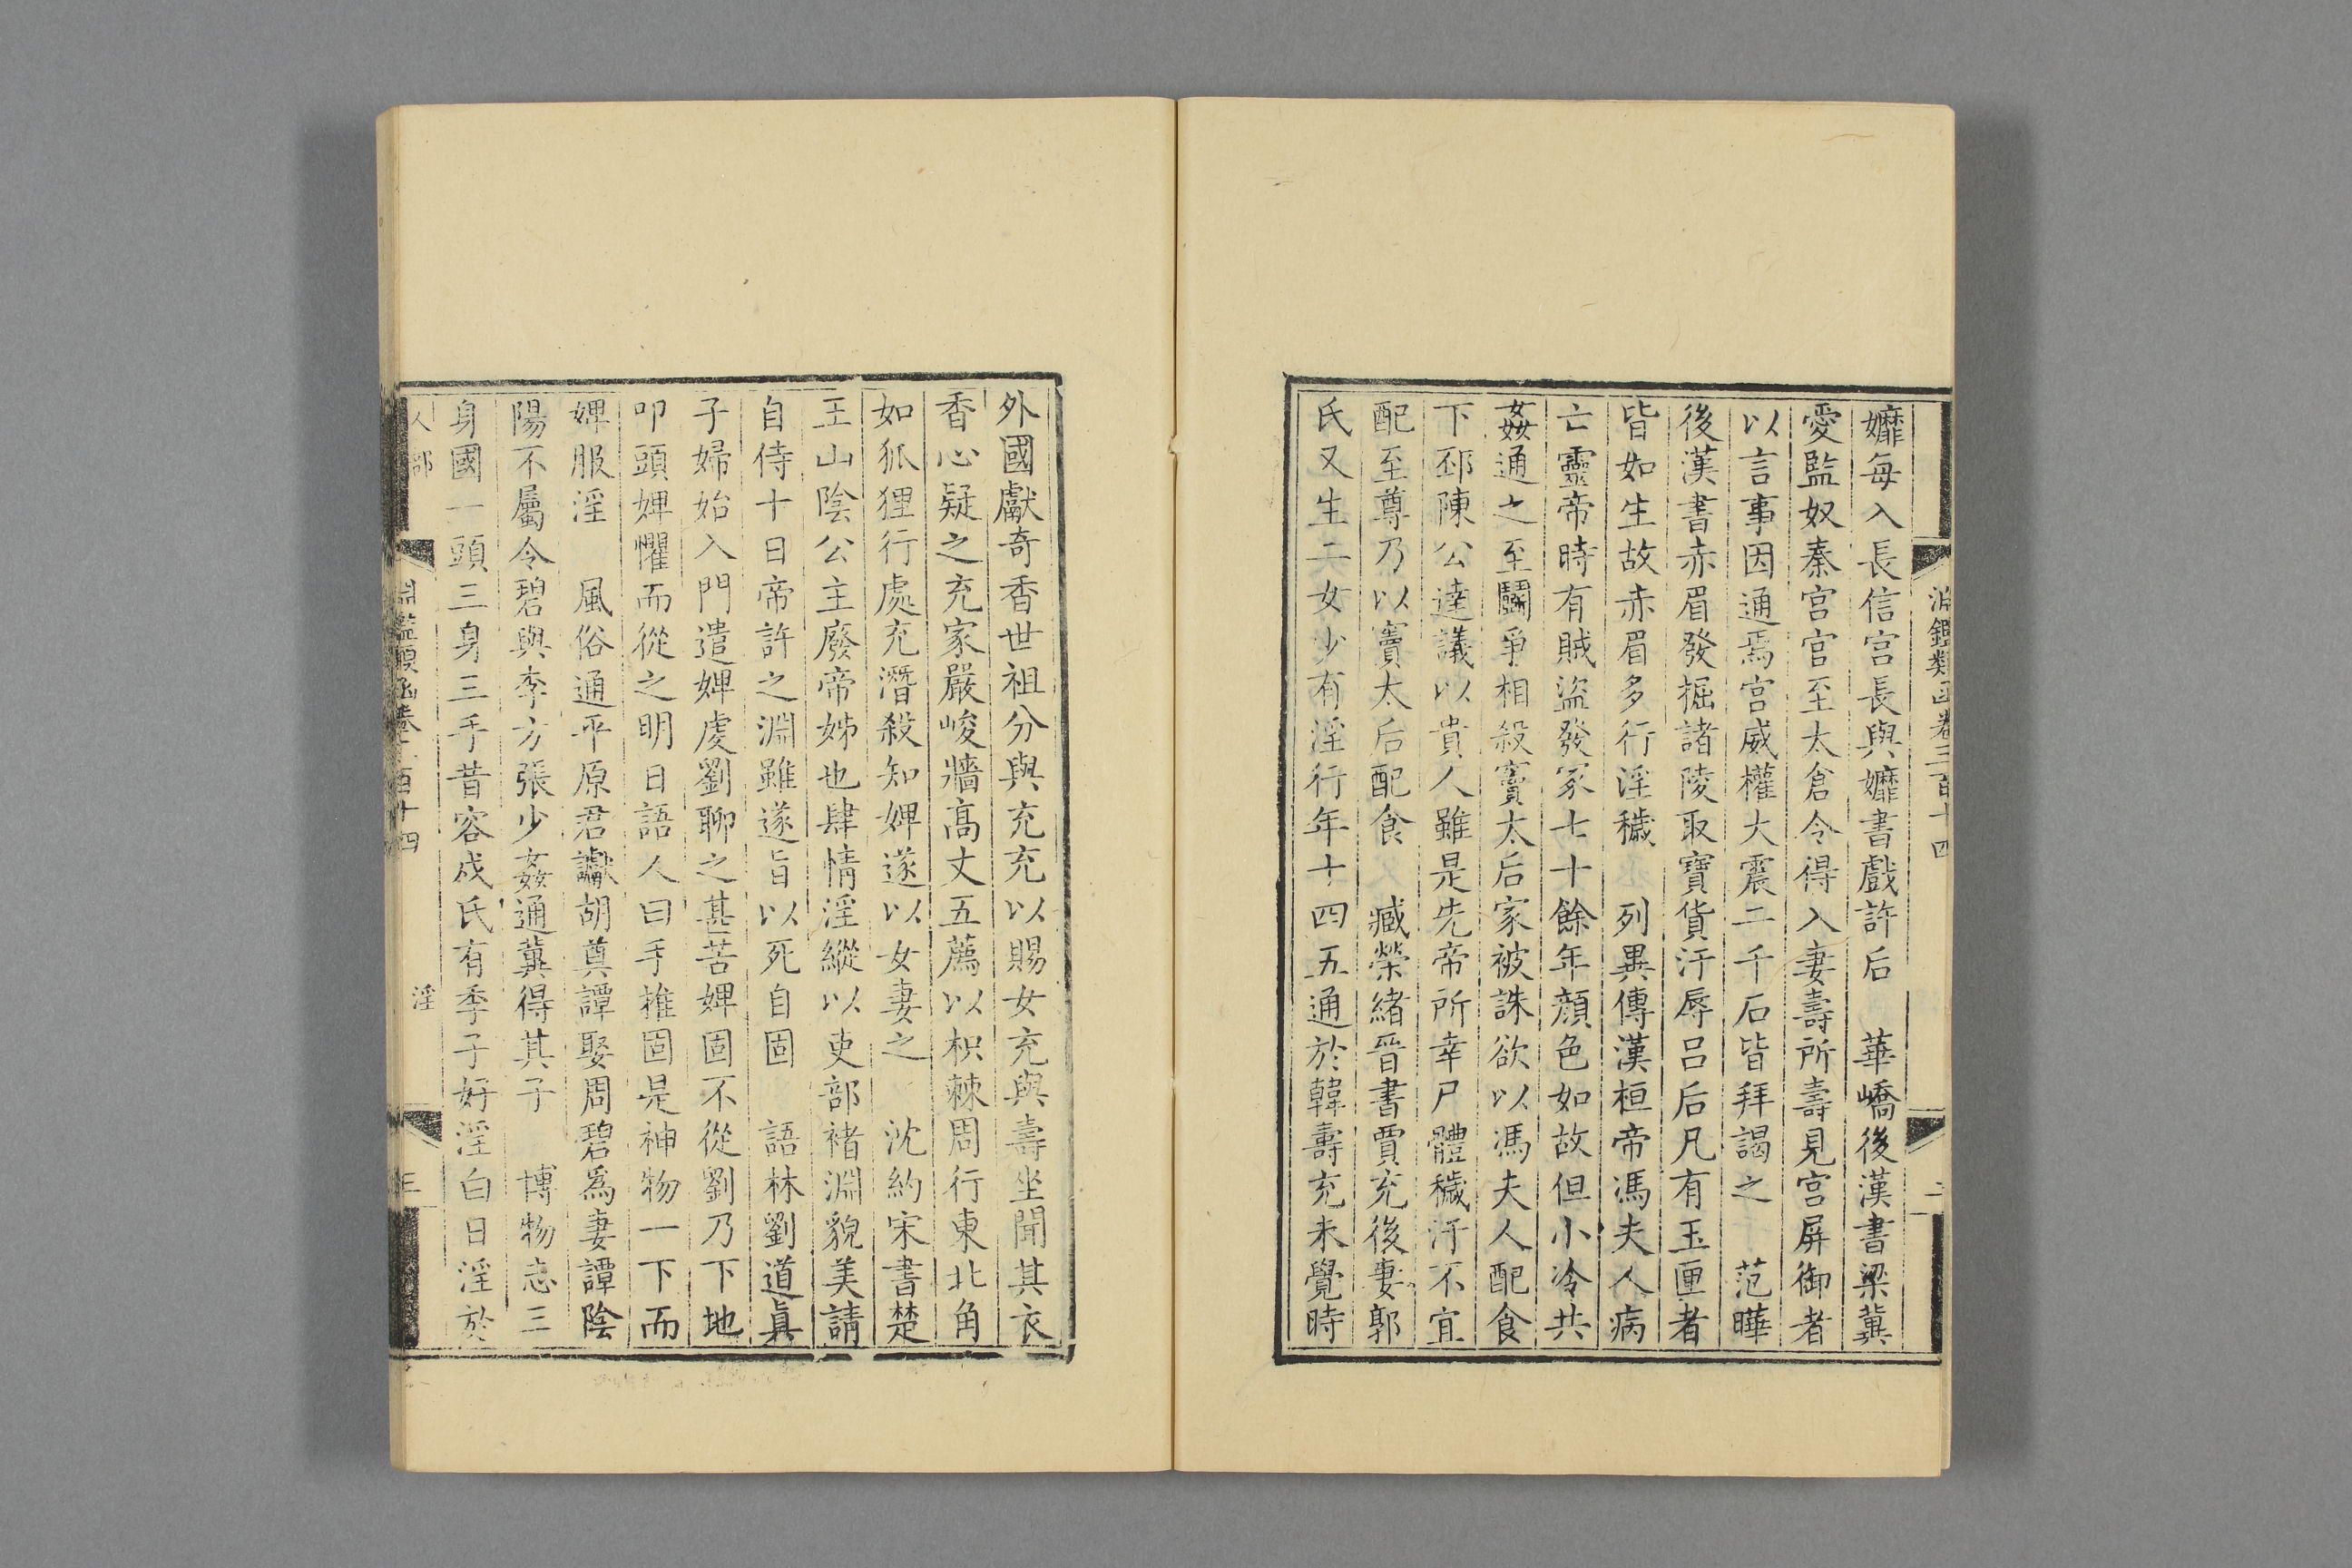 淵鑑類函卷三百十四
二
嬤每入長信宮長與嬤書戲許后　華嶠後漢書梁冀
愛監奴秦宮宮至太倉令得入妻壽所壽見宮屏御者
以言事因通焉宮威權大震二千石皆拜謁之　范曄
後漢書赤眉發掘諸陵取寶貨汙辱呂后凡有玉匣者
皆如生故赤眉多行淫穢　列異傳漢桓帝馮夫人病
亡靈帝時有賊盜發冢七十餘年顏色如故但小冷共
姦通之至鬭爭相殺竇太后家被誅欲以馮夫人配食
下邳陳公達議以貴人雖是先帝所幸尸體穢汙不宜
配至尊乃以竇太后配食　臧榮緒晉書賈充後妻郭
氏又生二女少有淫行年十四五通於韓壽充未覺時
外國獻奇香世祖分與充充以賜女充與壽坐聞其衣
香心疑之充家嚴峻牆高丈五薦以枳棘周行東北角
如狐狸行處充潛殺知婢遂以女妻之　沈約宋書楚
王山陰公主廢帝姊也肆情淫縱以吏部褚淵貌美請
自侍十日帝許之淵雖遂旨以死自固　語林劉道真
子婦始入門遣婢虔劉聊之甚苦婢固不從劉乃下地
叩頭婢懼而從之明日語人曰手推固是神物一下而
婢服淫　風俗通平原君讞胡奠譚娶周碧為妻譚陰
陽不屬令碧與李方張少姦通冀得其子　博物志三
身國一頭三身三手昔容成氏有季子好淫白日淫於
人部　淵鑑類函卷三百十四　淫　三